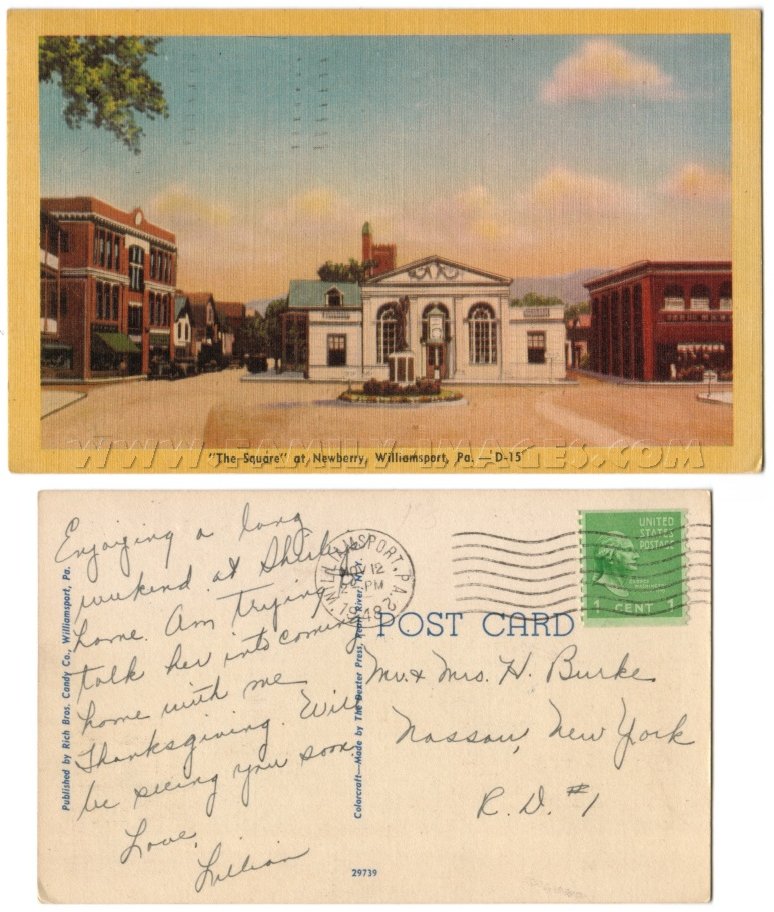 "The Square" at Newberry, Williamsport, Pa.—D-15
WWW.FAMILY-IMAGES.COM
Enjoying a long
weekend at Shirley's
home. Am trying
talk her into coming
home with me
Thanksgiving. Will
be seeing you soon.
Love,
Lillian
Published by Rich Bros. Candy Co., Williamsport, Pa.
Colorcraft—Made by The Dexter Press, Pearl River, N.Y.
29739
WILLIAMSPORT, PA. 2
NOV 12
PM
1948
UNITED
STATES
POSTAGE
1 CENT 1
POST CARD
Mr & Mrs. H. Burke
Nassau, New York
R.D. #1